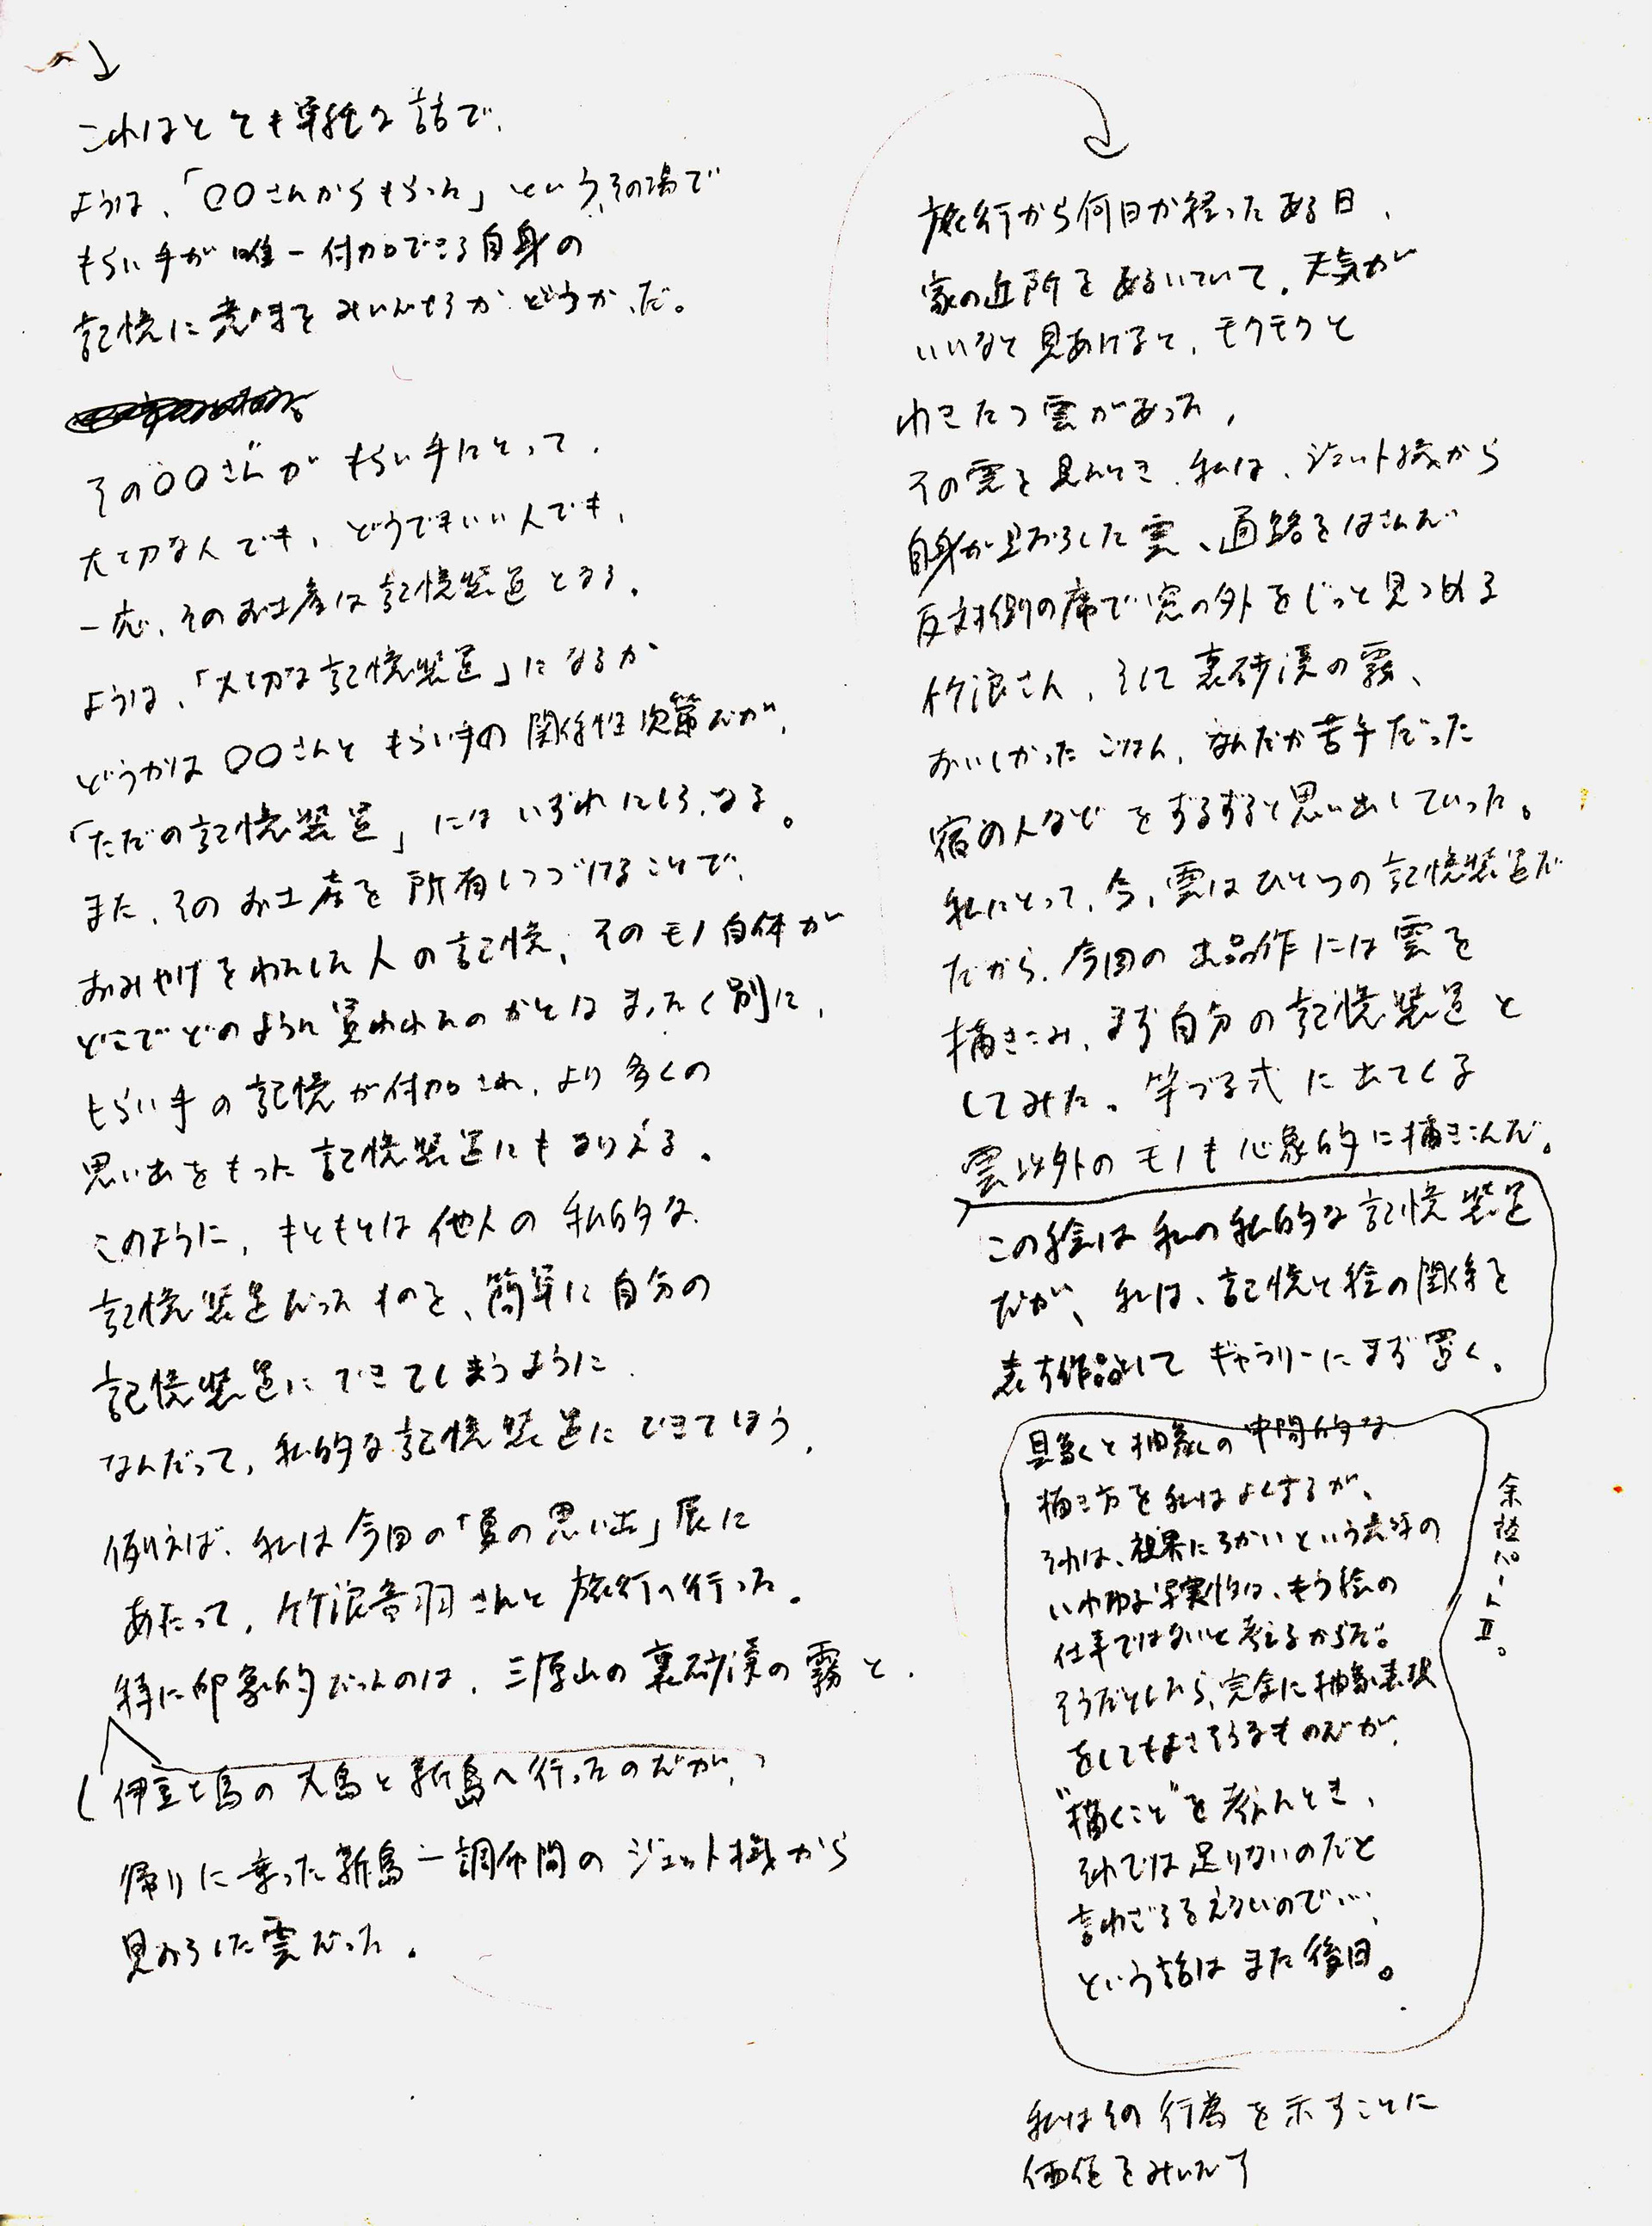 これはとても単純な話で、
ようは、「〇〇さんからもらった」という、その場で
もらい手が唯一付加できる自身の
記憶に意味をみいだせるかどうか、だ。
その〇〇さんが もらい手にとって、
大切な人でも、どうでもいい人でも、
一応、そのお土産は記憶装置となる。
ようは、「大切な記憶装置」になるか
どうかは〇〇さんと もらい手の関係性次第だが、
「ただの記憶装置」には いずれにしろ、なる。
また、そのお土産を所有しつづけることで、
おみやげをわたした人の記憶、そのモノ自体が
どこでどのように買われたのかとは まったく別に、
もらい手の記憶が付加され、より多くの
思い出をもった記憶装置にもなりえる。
このように、もともとは他人の私的な、
記憶装置だったものを、簡単に自分の
記憶装置にできてしまうように、
なんだって、私的な記憶装置にできてしまう、
例えば、私は今回の「夏の思い出」展に
あたって、竹浪音羽さんと旅行へ行った。
特に印象的だったのは、三原山の裏砂漠の霧と、
(伊豆七島の大島と新島へ行ったのだが、)
帰りに乗った新島ー調布間のジェット機から
見おろした雲だった。
旅行から何日か経ったある日、
家の近所をあるいていて、天気が
いいなと見あげると、モクモクと
わきたつ雲があった、
その雲を見たとき、私は、ジェット機から
自身が見おろした雲、通路をはさんだ
反対側の席で窓の外をじっと見つめる
竹浪さん、そして裏砂漠の霧、
おいしかったごはん、なんだか苦手だった
宿の人などをずるずると思い出していった。
私にとって、今、雲はひとつの記憶装置だ
だから、今回の出品作には雲を
描きこみ、まず自分の記憶装置と
してみた。芋づる式に出てくる
雲以外のモノも心象的に描きこんだ。
この絵は私の私的な記憶装置
だが、私は、記憶と絵の関係を
表す作品としてギャラリーにまず置く。
具象と抽象の中間的な
描き方を私はよくするが、
それは、視界にちかいという意味の
いわゆる写実性は、もう絵の
仕事ではないと考えるからだ。
そうだとしたら、完全に抽象表現
をしてもよさそうなものだが、
"描くこと"を考えたとき、
それでは足りないのだと
言わざるをえないので…、
という話はまた後日。
余談パートⅡ。
私はその行為を示すことに
価値をみいだす